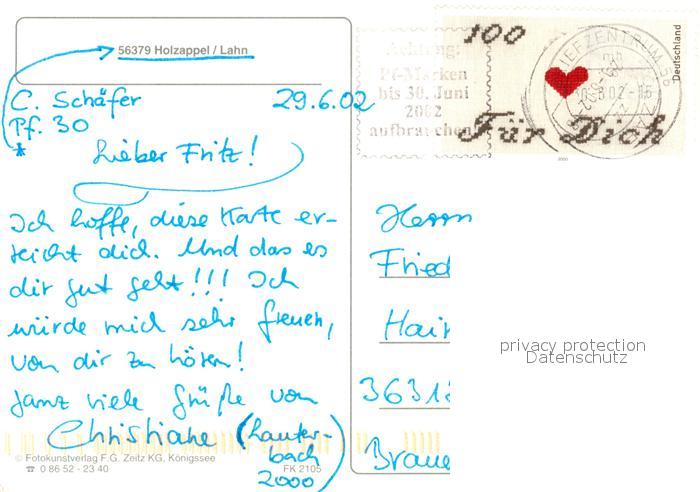 56379 Holzappel / Lahn
C. Schäfer 29.6.02
Pf. 30
*
Lieber Fritz!
Ich hoffe, diese Karte er-
reicht dich. Und das es
dir gut geht!!! Ich
würde mich sehr freuen,
von dir zu hören!
Ganz viele Grüße von
Christiane (Lauter-
bach
2000)
© Fotokunstverlag F.G. Zeitz KG, Königssee
☎ 0 86 52 - 23 40 FK 2105
Achtung:
Pf-Marken
bis 30. Juni
2002
aufbrauchen
100
Für Dich
Deutschland
2000
BRIEFZENTRUM 56
Herrn
Fried
Hair
3631
Braue
privacy protection
Datenschutz